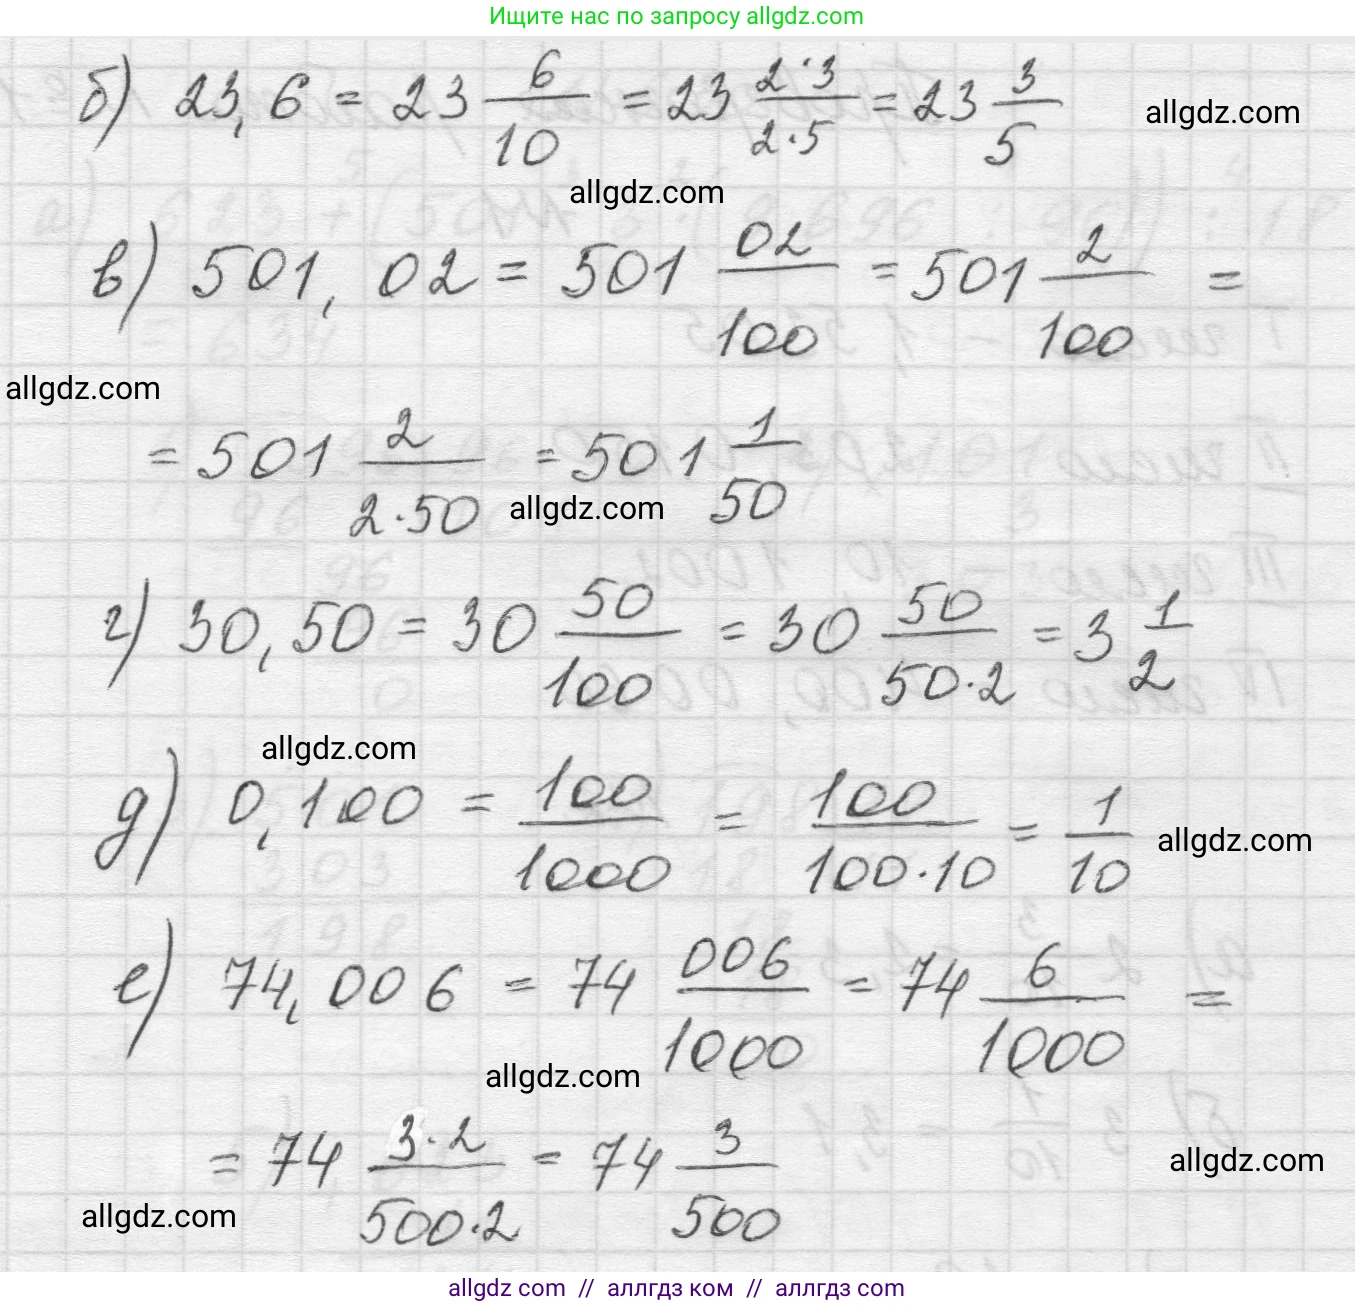 Ищите нас по запросу allgdz.com
б) 23,6 = 23 6/10 = 23 2·3/2·5 = 23 3/5
allgdz.com
allgdz.com
в) 501,02 = 501 02/100 = 501 2/100 =
allgdz.com
= 501 2/2·50 = 501 1/50
allgdz.com
г) 30,50 = 30 50/100 = 30 50/50·2 = 3 1/2
allgdz.com
д) 0,100 = 100/1000 = 100/100·10 = 1/10
allgdz.com
е) 74,006 = 74 006/1000 = 74 6/1000 =
allgdz.com
= 74 3·2/500·2 = 74 3/500
allgdz.com
allgdz.com
allgdz.com // аллгдз ком // аллгдз.com